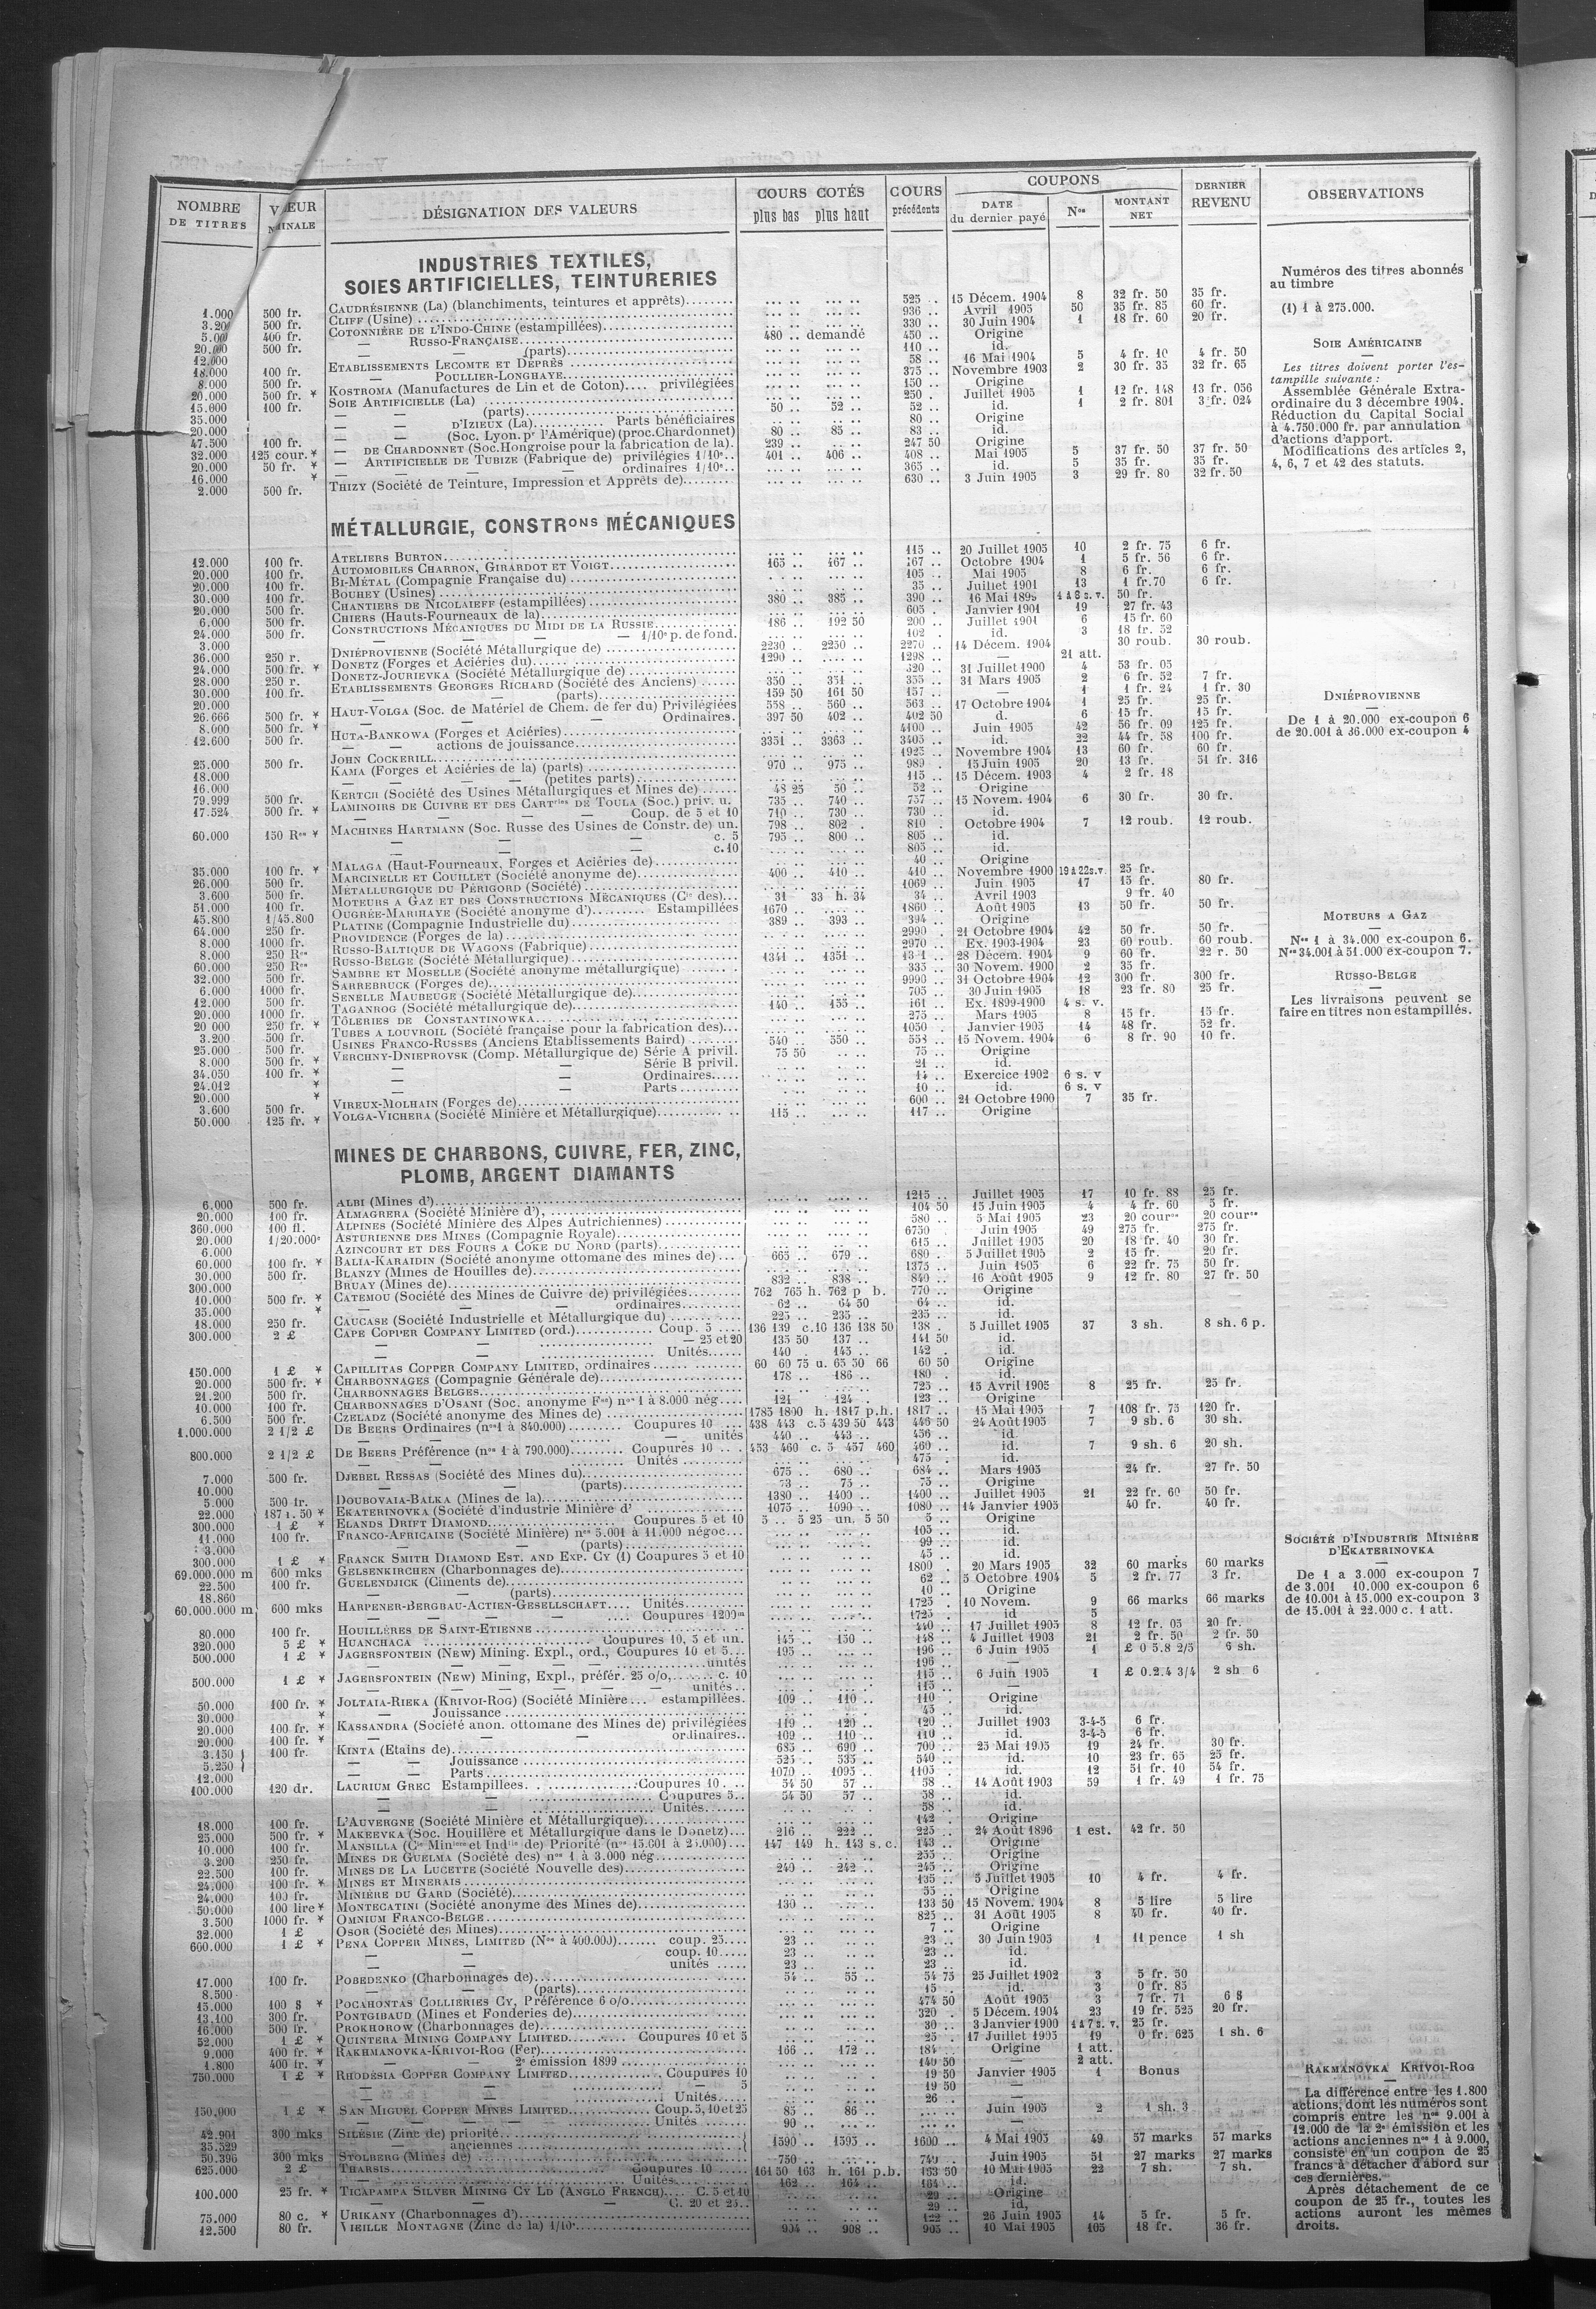 NOMBRE DE TITRES | NOMINALE | DÉSIGNATION DES VALEURS | COURS COTÉS plus bas plus haut | COURS précédents | COUPONS DATE du dernier payé Nos MONTANT NET | DERNIER REVENU | OBSERVATIONS
INDUSTRIES TEXTILES,
SOIES ARTIFICIELLES, TEINTURERIES
1.000 500 fr. CAUDRÉSIENNE (La) (blanchiments, teintures et apprêts) 525 15 Décem. 1904 8 32 fr. 50 35 fr.
500 fr. CLIFF (Usine) 936 Avril 1905 50 35 fr. 85 60 fr.
400 fr. COTONNIÈRE DE L'INDO-CHINE (estampillées) 330 30 Juin 1904 1 18 fr. 60 20 fr.
500 fr. — RUSSO-FRANÇAISE 480 demandé 450 Origine
— — (parts) 110 id.
100 fr. ETABLISSEMENTS LECOMTE ET DEPRÈS 58 16 Mai 1904 5 4 fr. 10 4 fr. 50
500 fr. — POULLIER-LONGHAYE 375 Novembre 1903 2 30 fr. 35 32 fr. 65
500 fr. * KOSTROMA (Manufactures de Lin et de Coton) privilégiées 150 Origine
100 fr. SOIE ARTIFICIELLE (La) 250 Juillet 1905 1 12 fr. 148 13 fr. 056
— — (parts) 50 52 52 id. 1 2 fr. 801 3 fr. 024
— D'IZIEUX (La) Parts bénéficiaires 80 Origine
— — (Soc. Lyon. pr l'Amérique) (proc. Chardonnet) 80 85 83 id.
— DE CHARDONNET (Soc. Hongroise pour la fabrication de la) 239 247 50 Origine
— ARTIFICIELLE DE TUBIZE (Fabrique de) privilégies 1/10e 401 406 408 Mai 1905 5 37 fr. 50 37 fr. 50
— — — ordinaires 1/10e 365 id. 5 35 fr. 35 fr.
2.000 500 fr. THIZY (Société de Teinture, Impression et Apprêts de) 630 3 Juin 1905 3 29 fr. 80 32 fr. 50
Numéros des titres abonnés
au timbre
(1) 1 à 275.000.
SOIE AMÉRICAINE
Les titres doivent porter l'es-
tampille suivante :
Assemblée Générale Extra-
ordinaire du 3 décembre 1904.
Réduction du Capital Social
à 4.750.000 fr. par annulation
d'actions d'apport.
Modifications des articles 2,
4, 6, 7 et 42 des statuts.
MÉTALLURGIE, CONSTRons MÉCANIQUES
12.000 100 fr. ATELIERS BURTON 115 20 Juillet 1905 10 2 fr. 75 6 fr.
20.000 100 fr. AUTOMOBILES CHARRON, GIRARDOT ET VOIGT 165 167 167 Octobre 1904 1 5 fr. 56 6 fr.
20.000 100 fr. BI-MÉTAL (Compagnie Française du) 105 Mai 1905 8 6 fr. 6 fr.
30.000 100 fr. BOUHEY (Usines) 35 Juillet 1901 13 1 fr.70 6 fr.
20.000 500 fr. CHANTIERS DE NICOLAIEFF (estampillées) 380 385 390 50 fr.
6.000 500 fr. CHIERS (Hauts-Fourneaux de la) 605 Janvier 1901 19 27 fr. 43
24.000 500 fr. CONSTRUCTIONS MÉCANIQUES DU MIDI DE LA RUSSIE 186 192 50 200 Juillet 1901 6 15 fr. 60
3.000 — — — 1/10e p. de fond. 102 id. 3 18 fr. 52
36.000 250 r. DNIÉPROVIENNE (Société Métallurgique de) 2230 2250 2270 14 Décem. 1904 30 roub. 30 roub.
24.000 500 fr. * DONETZ (Forges et Aciéries du) 1290 1298 — 21 att.
28.000 250 r. DONETZ-JOURIEVKA (Société Métallurgique de) 320 31 Juillet 1900 4 53 fr. 05
30.000 100 fr. ETABLISSEMENTS GEORGES RICHARD (Société des Anciens) 350 351 355 31 Mars 1905 2 6 fr. 52 7 fr.
20.000 — — (parts) 159 50 161 50 157 — 1 1 fr. 24 1 fr. 30
26.666 500 fr. * HAUT-VOLGA (Soc. de Matériel de Chem. de fer du) Privilégiées 558 560 563 17 Octobre 1904 1 25 fr. 25 fr.
8.000 500 fr. * — — — Ordinaires. 397 50 402 402 50 d. 6 15 fr. 15 fr.
12.600 500 fr. HUTA-BANKOWA (Forges et Aciéries) 4100 Juin 1905 42 56 fr. 09 125 fr.
— — actions de jouissance 3351 3363 3405 id. 22 44 fr. 58 100 fr.
25.000 500 fr. JOHN COCKERILL 1925 Novembre 1904 13 60 fr. 60 fr.
18.000 KAMA (Forges et Aciéries de la) (parts) 970 975 989 15 Juin 1905 20 13 fr. 51 fr. 316
16.000 — — — (petites parts) 115 15 Décem. 1903 4 2 fr. 18
79.999 500 fr. KERTCH (Société des Usines Métallurgiques et Mines de) 48 25 50 52 Origine
17.524 500 fr. * LAMINOIRS DE CUIVRE ET DES CARTries DE TOULA (Soc.) priv. u. 735 740 757 15 Novem. 1904 6 30 fr. 30 fr.
— — — — Coup. de 5 et 10 710 730 730 id.
60.000 150 Res * MACHINES HARTMANN (Soc. Russe des Usines de Constr. de) un. 798 802 810 Octobre 1904 7 12 roub. 12 roub.
— — — c. 5 795 800 805 id.
— — — c.10 805 id.
35.000 100 fr. * MALAGA (Haut-Fourneaux, Forges et Aciéries de) 40 Origine
26.000 500 fr. MARCINELLE ET COUILLET (Société anonyme de) 400 410 410 Novembre 1900 19 à 22 s.v. 25 fr.
3.600 500 fr. MÉTALLURGIQUE DU PÉRIGORD (Société) 1069 Juin 1905 17 15 fr. 80 fr.
51.000 100 fr. MOTEURS A GAZ ET DES CONSTRUCTIONS MÉCANIQUES (Cie des) 31 33 h. 34 34 Avril 1903 9 fr. 40
45.800 1/45.800 OUGRÉE-MARIHAYE (Société anonyme d') Estampillées 1670 1860 Août 1905 13 50 fr. 50 fr.
64.000 250 fr. PLATINE (Compagnie Industrielle du) 389 393 394 Origine
8.000 1000 fr. PROVIDENCE (Forges de la) 2990 21 Octobre 1904 42 50 fr. 50 fr.
8.000 250 Res RUSSO-BALTIQUE DE WAGONS (Fabrique) 2970 Ex. 1903-1904 23 60 roub. 60 roub.
60.000 250 Res RUSSO-BELGE (Société Métallurgique) 1341 1351 28 Décem. 1904 9 60 fr. 22 r. 50
32.000 500 fr. SAMBRE ET MOSELLE (Société anonyme métallurgique) 335 30 Novem. 1900 2 35 fr.
6.000 1000 fr. SARREBRUCK (Forges de) 9990 31 Octobre 1904 12 300 fr. 300 fr.
12.000 500 fr. SENELLE MAUBEUGE (Société Métallurgique de) 705 30 Juin 1905 18 23 fr. 80 25 fr.
20.000 1000 fr. TAGANROG (Société métallurgique de) 140 155 161 Ex. 1899-1900 4 s. v.
20 000 250 fr. * TÔLERIES DE CONSTANTINOWKA 275 Mars 1905 8 15 fr. 15 fr.
3.200 500 fr. TUBES A LOUVROIL (Société française pour la fabrication des) 1050 Janvier 1905 14 48 fr. 52 fr.
25.000 500 fr. USINES FRANCO-RUSSES (Anciens Etablissements Baird) 540 550 553 15 Novem. 1904 6 8 fr. 90 10 fr.
8.000 500 fr. * VERCHNY-DNIEPROVSK (Comp. Métallurgique de) Série A privil. 75 50 75 Origine
34.050 100 fr. * — — Série B privil. 21 id.
24.012 * — — Ordinaires 14 Exercice 1902 6 s. v
20.000 * — — Parts 10 id. 6 s. v
3.600 500 fr. VIREUX-MOLHAIN (Forges de) 600 21 Octobre 1900 7 35 fr.
50.000 125 fr. * VOLGA-VICHERA (Société Minière et Métallurgique) 115 117 Origine
DNIÉPROVIENNE
De 1 à 20.000 ex-coupon 6
de 20.001 à 36.000 ex-coupon 4
MOTEURS A GAZ
Nos 1 à 34.000 ex-coupon 6.
Nos 34.001 à 51.000 ex-coupon 7.
RUSSO-BELGE
Les livraisons peuvent se
faire en titres non estampillés.
MINES DE CHARBONS, CUIVRE, FER, ZINC,
PLOMB, ARGENT DIAMANTS
6.000 500 fr. ALBI (Mines d') 1215 Juillet 1905 17 10 fr. 88 25 fr.
20.000 100 fr. ALMAGRERA (Société Minière d'), 104 50 15 Juin 1905 4 4 fr. 60 5 fr.
360.000 100 fl. ALPINES (Société Minière des Alpes Autrichiennes) 580 5 Mai 1905 23 20 cours 20 cours
20.000 1/20.000e ASTURIENNE DES MINES (Compagnie Royale) 6750 Juin 1905 49 275 fr. 275 fr.
6.000 AZINCOURT ET DES FOURS A COKE DU NORD (parts) 615 Juillet 1905 20 18 fr. 40 30 fr.
60.000 100 fr. * BALIA-KARAIDIN (Société anonyme ottomane des mines de) 665 679 680 5 Juillet 1905 2 15 fr. 20 fr.
30.000 500 fr. BLANZY (Mines de Houilles de) 1375 Juin 1905 6 22 fr. 75 50 fr.
300.000 BRUAY (Mines de) 832 838 840 16 Août 1905 9 12 fr. 80 27 fr. 50
10.000 500 fr. * CATEMOU (Société des Mines de Cuivre de) privilégiées 762 765 h. 762 p b. 770 Origine
35.000 * — — ordinaires 62 64 50 64 id.
18.000 250 fr. CAUCASE (Société Industrielle et Métallurgique du) 225 235 235 id.
300.000 2 £ CAPE COPPER COMPANY LIMITED (ord.) Coup. 5 136 139 c.10 136 138 50 138 5 Juillet 1905 37 3 sh. 8 sh. 6 p.
— — — 25 et 20 135 50 137 141 50 id.
— — Unités 140 145 142 id.
150.000 1 £ * CAPILLITAS COPPER COMPANY LIMITED, ordinaires 60 60 75 u. 65 50 66 60 50 Origine
20.000 500 fr. * CHARBONNAGES (Compagnie Générale de) 178 186 180 id.
21.200 500 fr. CHARBONNAGES BELGES 725 15 Avril 1905 8 25 fr. 25 fr.
10.000 100 fr. CHARBONNAGES D'OSANI (Soc. anonyme Fse) nos 1 à 8.000 nég 121 124 123 Origine
6.500 500 fr. CZELADZ (Société anonyme des Mines de) 1785 1800 h. 1817 p.h. 1817 15 Mai 1905 7 108 fr. 75 120 fr.
1.000.000 2 1/2 £ DE BEERS Ordinaires (nos 1 à 840.000) Coupures 10 438 443 c.5 439 50 443 446 50 24 Août 1905 7 9 sh. 6 30 sh.
— — unités 440 443 456 id.
800.000 2 1/2 £ DE BEERS Préférence (nos 1 à 790.000) Coupures 10 453 460 c. 5 457 460 460 id. 7 9 sh. 6 20 sh.
— — Unités 475 id.
7.000 500 fr. DJEBEL RESSAS (Société des Mines du) 675 680 684 Mars 1905 24 fr. 27 fr. 50
10.000 — — (parts) 73 75 75 Origine
5.000 500 fr. DOUBOVAIA-BALKA (Mines de la) 1380 1400 1400 Juillet 1905 21 22 fr. 60 50 fr.
22.000 187 r. 50 * EKATERINOVKA (Société d'industrie Minière d' 1075 1090 1080 14 Janvier 1905 40 fr. 40 fr.
300.000 1 £ * ELANDS DRIFT DIAMOND Coupures 5 et 10 5 5 25 un. 5 50 5 Origine
11.000 100 fr. FRANCO-AFRICAINE (Société Minière) nos 5.001 à 11.000 négoc 105 id.
3.000 — — (parts) 99 id.
300.000 1 £ * FRANCK SMITH DIAMOND EST. AND EXP. CY (1) Coupures 5 et 10 45 id.
69.000.000 m 600 mks GELSENKIRCHEN (Charbonnages de) 1800 20 Mars 1905 32 60 marks 60 marks
22.500 100 fr. GUELENDJICK (Ciments de) 62 5 Octobre 1904 5 2 fr. 77 3 fr.
18.860 — — (parts) 10 Origine
60.000.000 m 600 mks HARPENER-BERGBAU-ACTIEN-GESELLSCHAFT Unités 1725 10 Novem. 9 66 marks 66 marks
— — — — Coupures 1200m 1725 id 5
80.000 100 fr. HOUILLÈRES DE SAINT-ETIENNE 440 17 Juillet 1905 8 12 fr. 05 20 fr.
320.000 5 £ * HUANCHACA Coupures 10, 5 et un. 145 150 148 4 Juillet 1903 21 2 fr. 50 2 fr. 50
500.000 1 £ * JAGERSFONTEIN (NEW) Mining. Expl., ord., Coupures 10 et 5 195 196 6 Juin 1905 1 £ 0 5.8 2/5 6 sh.
— — — unités 196 —
500.000 1 £ * JAGERSFONTEIN (NEW) Mining, Expl., préfér. 25 o/o, c. 10 115 6 Juin 1905 1 £ 0.2.4 3/4 2 sh 6
— — — — unités 115 —
50.000 100 fr. * JOLTAIA-RIEKA (KRIVOI-ROG) (Société Minière estampillées. 109 110 110 Origine
30.000 * — Jouissance 45 id.
20.000 100 fr. * KASSANDRA (Société anon. ottomane des Mines de) privilégiées 119 120 120 Juillet 1903 3-4-5 6 fr.
20.000 100 fr. * — — — ordinaires 109 110 110 id. 3-4-5 6 fr.
3.150 100 fr. KINTA (Etains de) 685 690 700 25 Mai 1905 19 24 fr. 30 fr.
5.250 — — Jouissance 525 535 540 id. 10 23 fr. 65 25 fr.
12.000 — — Parts 1070 1095 1105 id. 12 51 fr. 10 54 fr.
100.000 120 dr. LAURIUM GREC Estampillees Coupures 10 54 50 57 58 14 Août 1903 59 1 fr. 49 1 fr. 75
— — Coupures 5 54 50 57 58 id.
— — Unités 58 id.
18.000 100 fr. L'AUVERGNE (Société Minière et Métallurgique) 142 Origine
25.000 500 fr. * MAKEEVKA (Soc. Houillère et Métallurgique dans le Donetz) 216 222 225 24 Août 1896 1 est. 42 fr. 50
10.000 100 fr. MANSILLA (Cie Minière et Indlle de) Priorité (nos 15.001 à 25.000) 147 149 h. 143 s.c. 143 Origine
3.200 250 fr. MINES DE GUELMA (Société des) nos 1 à 3.000 nég 255 Origine
22.500 100 fr. MINES DE LA LUCETTE (Société Nouvelle des) 240 242 245 Origine
24.000 100 fr. * MINES ET MINERAIS 135 5 Juillet 1905 10 4 fr. 4 fr.
24.000 100 fr. MINIÈRE DU GARD (Société) 55 Origine
50.000 100 lire * MONTECATINI (Société anonyme des Mines de) 130 133 50 15 Novem. 1904 8 5 lire 5 lire
3.500 1000 fr. * OMNIUM FRANCO-BELGE 825 31 Août 1905 8 40 fr. 40 fr.
32.000 1 £ OSOR (Société des Mines) 7 Origine
600.000 1 £ * PENA COPPER MINES, LIMITED (Nos à 400.000) coup. 25 23 23 30 Juin 1905 1 11 pence 1 sh
— — coup. 10 23 23 id.
— — unités 23 23 id.
17.000 100 fr. POBEDENKO (Charbonnages de) 54 55 54 75 25 Juillet 1902 3 5 fr. 50
8.500 — — (parts) 15 id. 3 0 fr. 85
15.000 100 $ * POCAHONTAS COLLIERIES CY, Préférence 6 o/o 474 50 Août 1905 3 7 fr. 71 6 $
13.100 300 fr. PONTGIBAUD (Mines et Fonderies de) 320 5 Décem. 1904 23 19 fr. 525 20 fr.
16.000 500 fr. PROKHOROW (Charbonnages de) 30 3 Janvier 1900 1 à 7 s. v. 25 fr.
52.000 1 £ * QUINTERA MINING COMPANY LIMITED Coupures 10 et 5 25 17 Juillet 1905 19 0 fr. 625 1 sh. 6
9.000 400 fr. * RAKHMANOVKA-KRIVOI-ROG (Fer) 166 172 184 Origine 1 att.
1.800 400 fr. * — — 2e émission 1899 140 50 — 2 att.
750.000 1 £ * RHODÉSIA COPPER COMPANY LIMITED Coupures 10 19 50 Janvier 1905 1 Bonus
— — — 5 19 50 —
— — Unités 26 —
150,000 1 £ * SAN MIGUEL COPPER MINES LIMITED Coup. 5, 10 et 25 85 86 Juin 1905 2 1 sh. 3
— — — — Unités 90 —
42.901 300 mks SILÉSIE (Zinc de) priorité
35.529 — anciennes 1590 1595 1600 4 Mai 1905 49 57 marks 57 marks
50.396 300 mks STOLBERG (Mines de) 750 740 Juin 1905 51 27 marks 27 marks
625.000 2 £ THARSIS Coupures 10 161 50 163 h. 161 p.b. 163 50 10 Mai 1905 22 7 sh. 7 sh.
Unités 162 164 164 id.
100.000 25 fr. * TICAPAMPA SILVER MINING CY LD (ANGLO FRENCH) C. 5 et 10 29 Origine
— — C. 20 et 25 29 id.
75.000 80 c. * URIKANY (Charbonnages d') 122 26 Juin 1905 14 5 fr. 5 fr.
12.500 80 fr. VIEILLE MONTAGNE (Zinc de la) 1/10e 904 908 905 10 Mai 1905 105 18 fr. 36 fr.
SOCIÉTÉ D'INDUSTRIE MINIÈRE
D'EKATERINOVKA
De 1 a 3.000 ex-coupon 7
de 3.001 10.000 ex-coupon 6
de 10.001 à 15.000 ex-coupon 3
de 15.001 à 22.000 c. 1 att.
RAKMANOVKA KRIVOI-ROG
La différence entre les 1.800
actions, dont les numéros sont
compris entre les nos 9.001 à
12.000 de la 2e émission et les
actions anciennes nos 1 à 9.000,
consiste en un coupon de 25
francs à détacher d'abord sur
ces dernières.
Après détachement de ce
coupon de 25 fr., toutes les
actions auront les mêmes
droits.